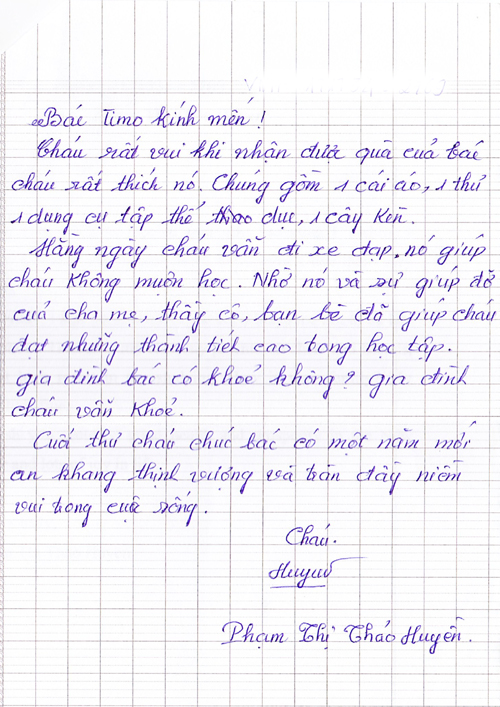 Bác Timo kính mến!
Cháu rất vui khi nhận đưa quà của bác
cháu rất thích nó. Chúng gồm 1 cái áo, 1 thư
1 dụng cụ tập thể thao dục, 1 cây kèn.
Hằng ngày cháu vẫn đi xe đạp, nó giúp
cháu không muộn học. Nhờ nó và sự giúp đỡ
của cha mẹ, thầy cô, bạn bè đã giúp cháu
đạt những thành tích cao tong học tập.
gia đình bác có khoẻ không? gia đình
cháu vẫn khoẻ.
Cuối thư cháu chúc bác có một năm mới
an khang thịnh vượng và tràn đầy niềm
vui tong cuộ sống.
Cháu.
Huyền
Phạm Thị Thảo Huyền.